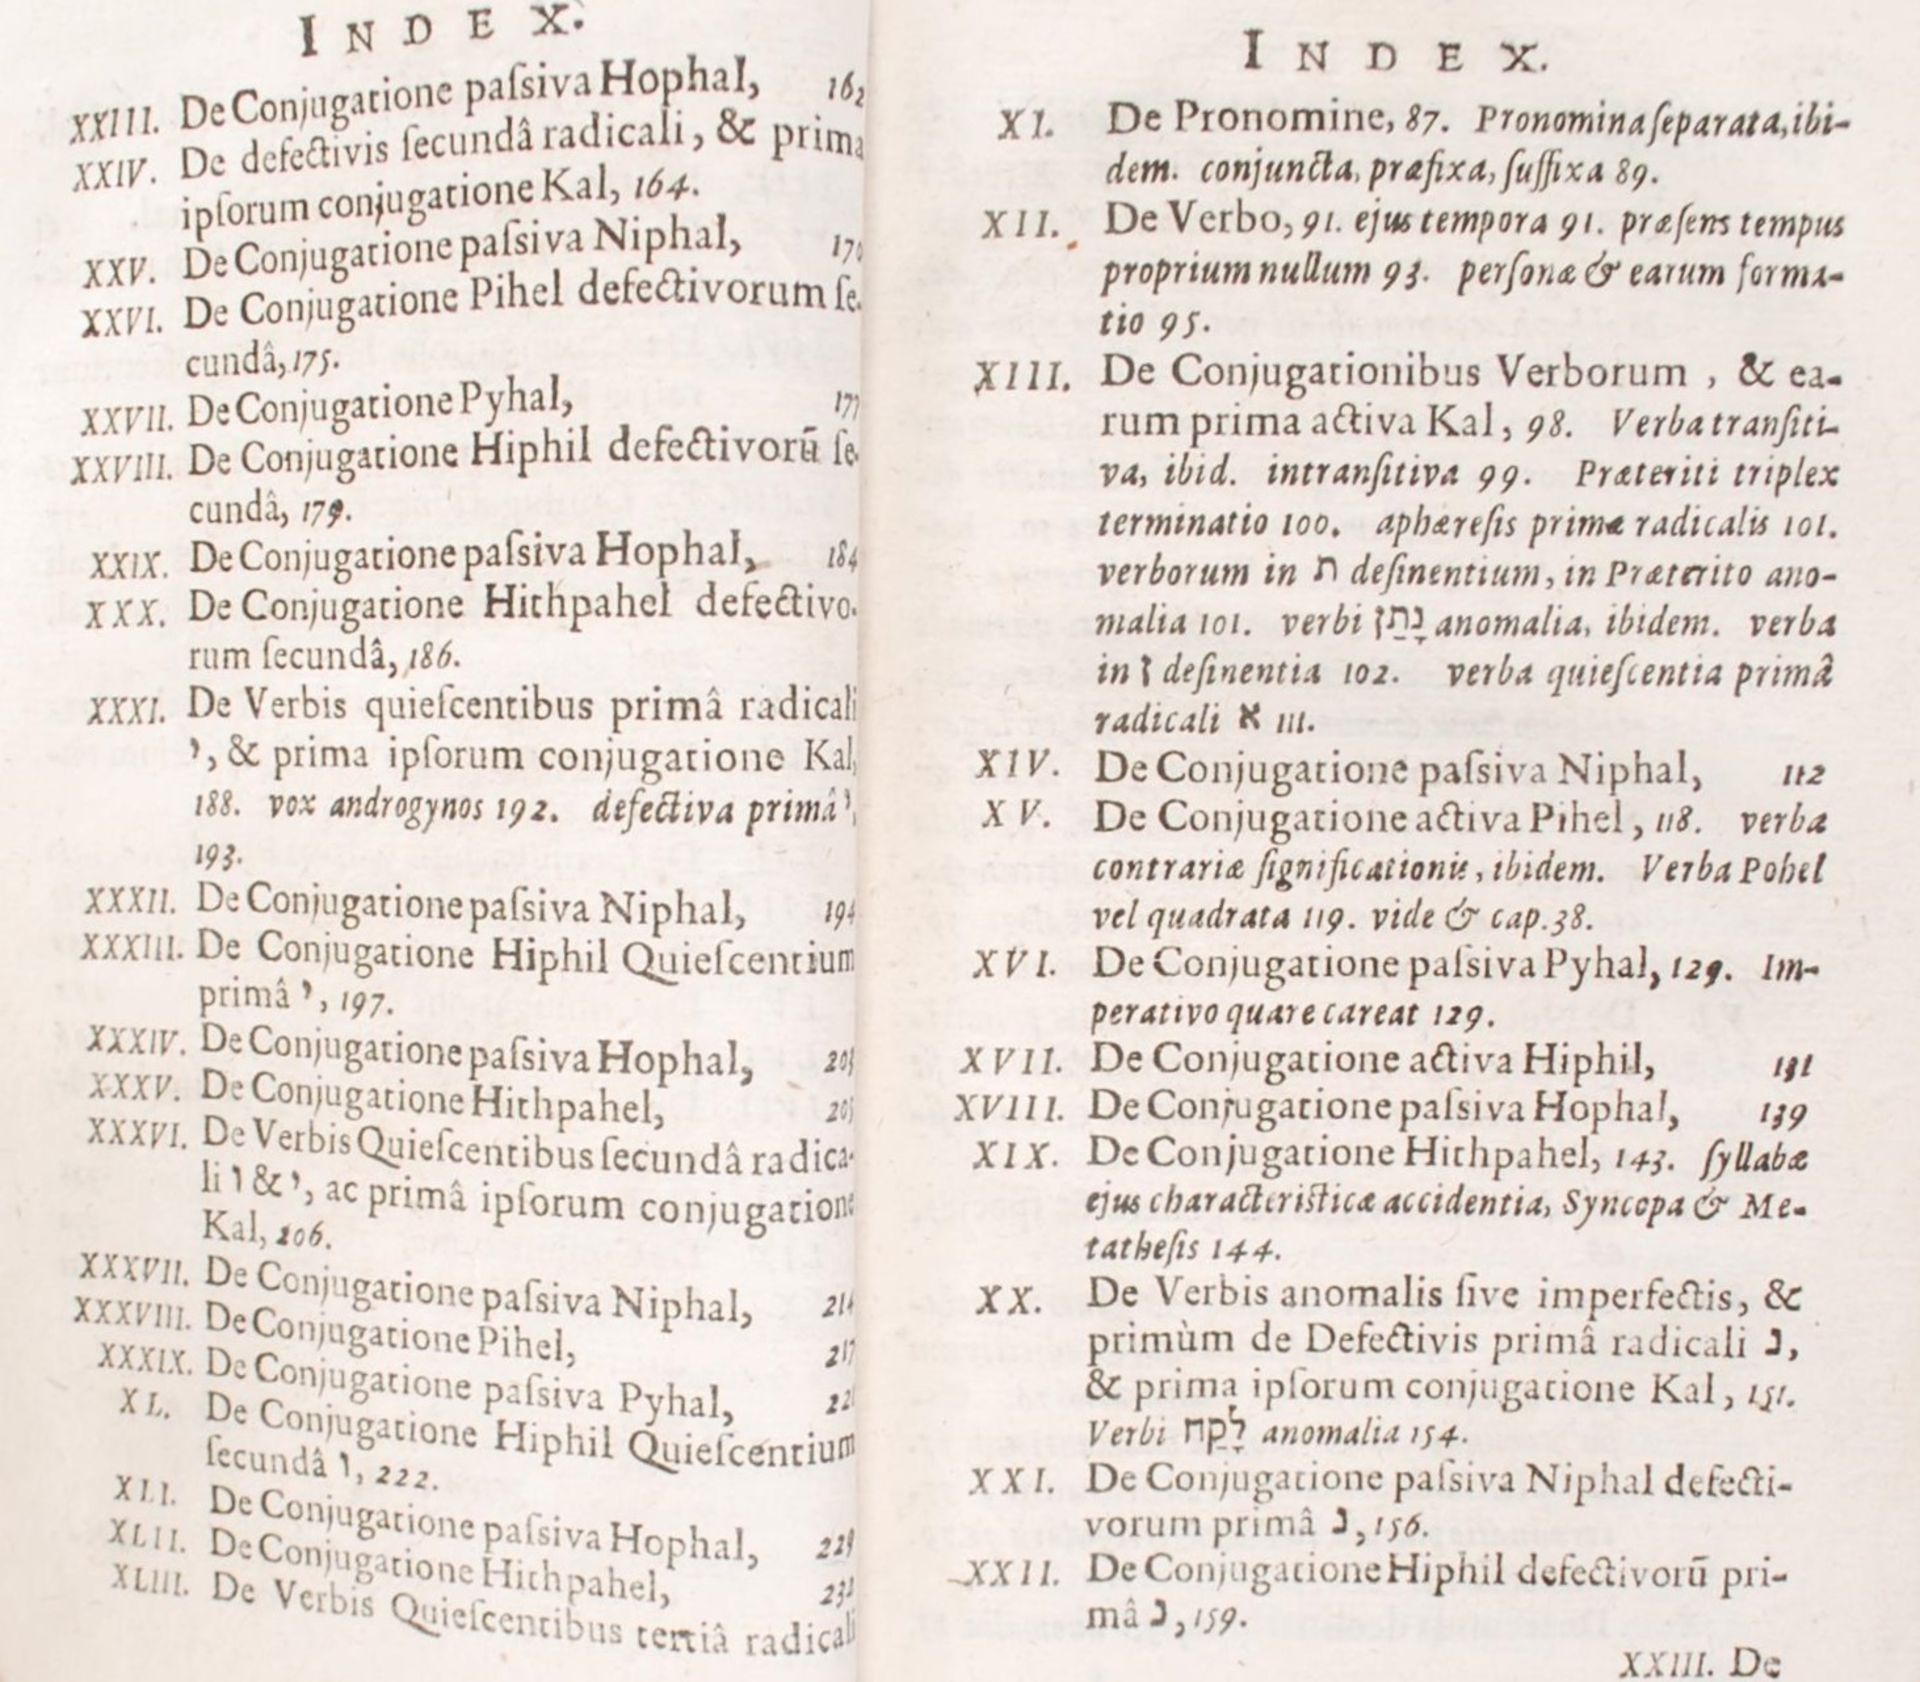 INDEX.
XXIII. De Conjugatione paſsiva Hophal, 162
XXIV. De defectivis ſecundâ radicali, & prima
ipſorum conjugatione Kal, 164.
XXV. De Conjugatione paſsiva Niphal,
XXVI. De Conjugatione Pihel defectivorum ſe-
cundâ, 175.
XXVII. De Conjugatione Pyhal, 177
XXVIII. De Conjugatione Hiphil defectivorū ſe-
cundâ, 179.
XXIX. De Conjugatione paſsiva Hophal, 184
XXX. De Conjugatione Hithpahel defectivo-
rum ſecundâ, 186.
XXXI. De Verbis quieſcentibus primâ radicali
י, & prima ipſorum conjugatione Kal,
188. vox androgynos 192. defectiva primâ י,
193.
XXXII. De Conjugatione paſsiva Niphal, 194
XXXIII. De Conjugatione Hiphil Quieſcentium
primâ י, 197.
XXXIV. De Conjugatione paſsiva Hophal,
XXXV. De Conjugatione Hithpahel,
XXXVI. De Verbis Quieſcentibus ſecundâ radica-
li ו & י, ac primâ ipſorum conjugatione
Kal, 206.
XXXVII. De Conjugatione paſsiva Niphal, 214
XXXVIII. De Conjugatione Pihel, 217
XXXIX. De Conjugatione paſsiva Pyhal,
XL. De Conjugatione Hiphil Quieſcentium
ſecundâ ו, 222.
XLI. De Conjugatione paſsiva Hophal, 229
XLII. De Conjugatione Hithpahel,
XLIII. De Verbis Quieſcentibus tertiâ radicali
INDEX.
XI. De Pronomine, 87. Pronomina ſeparata, ibi-
dem. conjuncta, præfixa, ſuffixa 89.
XII. De Verbo, 91. ejus tempora 91. præſens tempus
proprium nullum 93. perſonæ & earum forma-
tio 95.
XIII. De Conjugationibus Verborum, & ea-
rum prima activa Kal, 98. Verba tranſiti-
va, ibid. intranſitiva 99. Præteriti triplex
terminatio 100. aphæreſis primæ radicalis 101.
verborum in ת deſinentium, in Præterito ano-
malia 101. verbi נָתַן anomalia, ibidem. verba
in ן deſinentia 102. verba quieſcentia primâ
radicali א 111.
XIV. De Conjugatione paſsiva Niphal, 112
XV. De Conjugatione activa Pihel, 118. verba
contrariæ ſignificationis, ibidem. Verba Pohel
vel quadrata 119. vide & cap. 38.
XVI. De Conjugatione paſsiva Pyhal, 129. Im-
perativo quare careat 129.
XVII. De Conjugatione activa Hiphil, 131
XVIII. De Conjugatione paſsiva Hophal, 139
XIX. De Conjugatione Hithpahel, 143. ſyllabæ
ejus characteriſticæ accidentia, Syncopa & Me-
tatheſis 144.
XX. De Verbis anomalis ſive imperfectis, &
primùm de Defectivis primâ radicali נ,
& prima ipſorum conjugatione Kal, 151.
Verbi לָקַח anomalia 154.
XXI. De Conjugatione paſsiva Niphal defecti-
vorum primâ נ, 156.
XXII. De Conjugatione Hiphil defectivorū pri-
mâ נ, 159.
XXIII. De